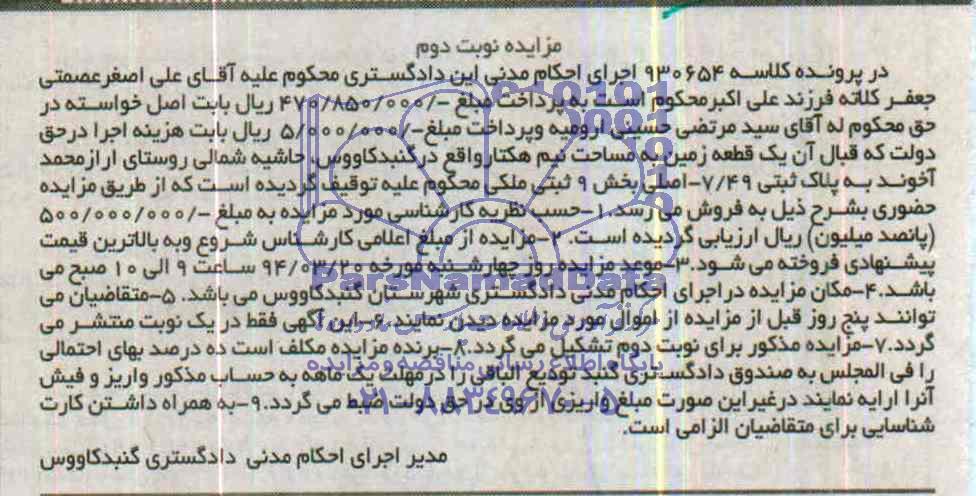 مزایده نوبت دوم
در پرونده کلاسه ۹۳۰۶۵۴ اجرای احکام مدنی این دادگستری محکوم علیه آقای علی اصغرعصمتی
جعفر کلاته فرزند علی اکبرمحکوم است به پرداخت مبلغ -/۴۷۰/۸۵۰/۰۰۰ ریال بابت اصل خواسته در
حق محکوم له آقای سید مرتضی حسینی ارومیه وپرداخت مبلغ-/۵/۰۰۰/۰۰۰ ریال بابت هزینه اجرا درحق
دولت که قبال آن یک قطعه زمین به مساحت نیم هکتارواقع درگنبدکاووس، حاشیه شمالی روستای ارازمحمد
آخوند به پلاک ثبتی ۷/۴۹-اصلی بخش ۹ ثبتی ملکی محکوم علیه توقیف گردیده است که از طریق مزایده
حضوری بشرح ذیل به فروش می رسد.۱-حسب نظریه کارشناسی مورد مزایده به مبلغ -/۵۰۰/۰۰۰/۰۰۰
(پانصد میلیون) ریال ارزیابی گردیده است. ۲-مزایده از مبلغ اعلامی کارشناس شروع وبه بالاترین قیمت
پیشنهادی فروخته می شود.۳-موعد مزایده روز چهارشنبه مورخه ۹۴/۰۳/۲۰ ساعت ۹ الی ۱۰ صبح می
باشد.۴-مکان مزایده در اجرای احکام مدنی دادگستری شهرستان گنبدکاووس می باشد. ۵-متقاضیان می
توانند پنج روز قبل از مزایده از اموال مورد مزایده دیدن نمایند.۶-این آگهی فقط در یک نوبت منتشر می
گردد.۷-مزایده مذکور برای نوبت دوم تشکیل می گردد.۸-برنده مزایده مکلف است ده درصد بهای احتمالی
را فی المجلس به صندوق دادگستری گنبد تودیع الباقی را در مهلت یک ماهه به حساب مذکور واریز و فیش
آنرا ارایه نمایند درغیراین صورت مبلغ واریزی از وی در حق دولت ضبط می گردد.۹-به همراه داشتن کارت
شناسایی برای متقاضیان الزامی است.
مدیر اجرای احکام مدنی دادگستری گنبدکاووس
ParsNamadData
پایگاه اطلاع رسانی مناقصه و مزایده
۰۲۱-۸۸۳۴۹۶۷۰-۵